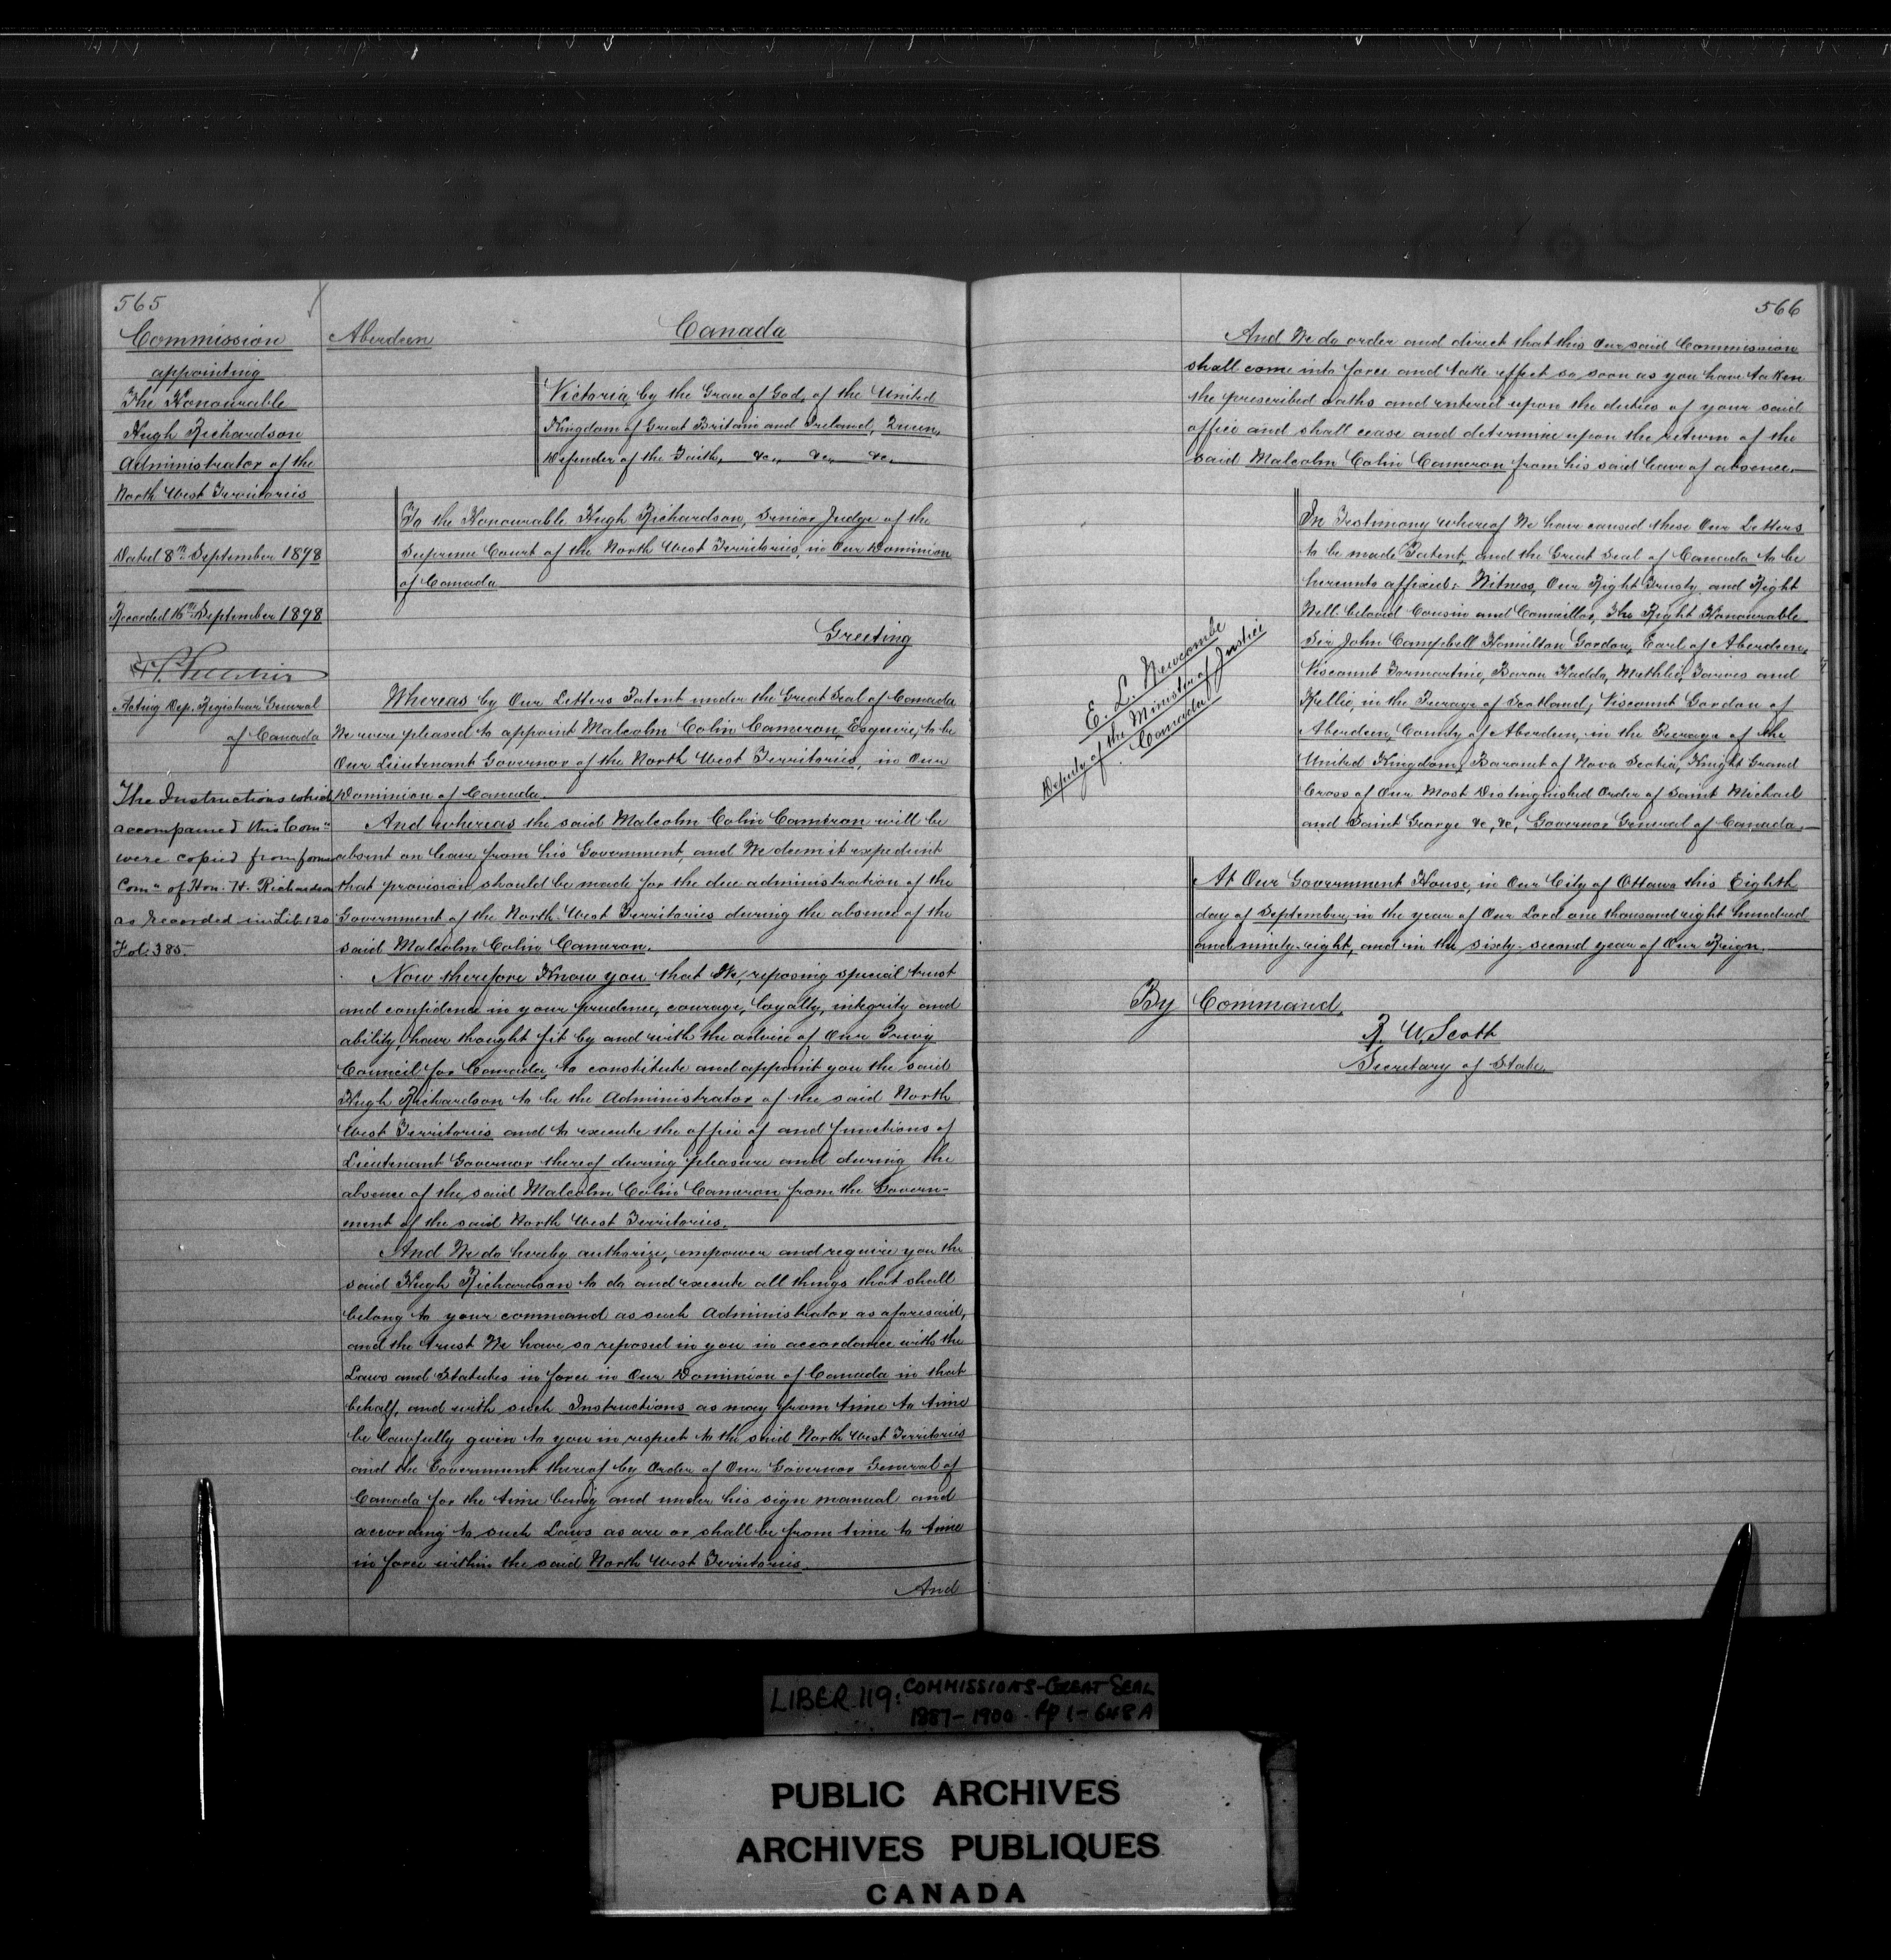 565
Commission
appointing
The Honourable
Hugh Richardson
Administrator of the
North West Territories
Dated 8th September 1898
Recorded 16th September 1898
Acting Dep. Registrar General
of Canada
The Instructions which
accompanied this Comn
were copied from former
Comn of Hon. H. Richardson
as recorded in Lib. 120
Fol. 385.
Aberdeen
Canada
Victoria, by the Grace of God, of the United
Kingdom of Great Britain and Ireland, Queen,
Defender of the Faith, &c., &c., &c.
To the Honourable Hugh Richardson, Senior Judge of the
Supreme Court of the North West Territories in Our Dominion
of Canada
Greeting
Whereas by Our Letters Patent under the Great Seal of Canada
We were pleased to appoint Malcolm Colin Cameron, Esquire, to be
Our Lieutenant Governor of the North West Territories, in Our
Dominion of Canada.
And whereas the said Malcolm Colin Cameron will be
absent on leave from his Government, and We deem it expedient
that provision should be made for the due administration of the
Government of the North West Territories during the absence of the
said Malcolm Colin Cameron.
Now therefore Know you that We, reposing special trust
and confidence in your prudence, courage, loyalty, integrity and
ability, have thought fit by and with the advice of Our Privy
Council for Canada, to constitute and appoint you the said
Hugh Richardson to be the Administrator of the said North
West Territories and to execute the office of and functions of
Lieutenant Governor thereof during pleasure and during the
absence of the said Malcolm Colin Cameron from the Govern-
ment of the said North West Territories.
And We do hereby authorize, empower and require you the
said Hugh Richardson to do and execute all things that shall
belong to your command as such Administrator as aforesaid,
and the trust We have so reposed in you in accordance with the
Laws and Statutes in force in Our Dominion of Canada in that
behalf, and with such Instructions as may from time to time
be lawfully given to you in respect to the said North West Territories
and the Government thereof by Order of Our Governor General of
Canada for the time being and under his sign manual and
according to such Laws as are or shall be from time to time
in force within the said North West Territories
And
566
And We do order and direct that this Our said Commission
shall come into force and take effect so soon as you have taken
the prescribed oaths and entered upon the duties of your said
office and shall cease and determine upon the return of the
said Malcolm Colin Cameron from his said leave of absence.
E. L. Newcombe
Deputy of the Minister of Justice
Canada.
In Testimony whereof We have caused these Our Letters
to be made Patent, and the Great Seal of Canada to be
hereunto affixed: Witness, Our Right Trusty and Right
Well-beloved Cousin and Councillor, The Right Honourable
Sir John Campbell Hamilton Gordon, Earl of Aberdeen,
Viscount Formartine, Baron Haddo, Methlic, Tarves and
Kellie, in the Peerage of Scotland; Viscount Gordon of
Aberdeen, County of Aberdeen, in the Peerage of the
United Kingdom, Baronet of Nova Scotia, Knight Grand
Cross of Our Most Distinguished Order of Saint Michael
and Saint George &c, &c, Governor General of Canada.
At Our Government House, in Our City of Ottawa this Eighth
day of September, in the year of Our Lord one thousand eight hundred
and ninety-eight, and in the sixty-second year of Our Reign.
By Command,
R. W. Scott
Secretary of State.
LIBER 119: COMMISSIONS-GREAT SEAL
1887-1900 - Pp 1-648A
PUBLIC ARCHIVES
ARCHIVES PUBLIQUES
CANADA